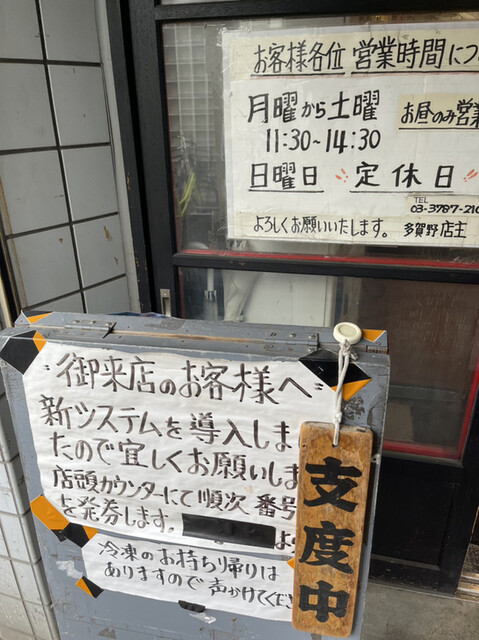 お客様各位 営業時間につ
月曜から土曜 お昼のみ営業
11:30~14:30
日曜日 定休日
TEL
03-3787-210
よろしくお願いいたします。 多賀野店主
御来店のお客様へ
新システムを導入しま
たので宜しくお願いしま
店頭カウンターにて順次 番号
を発券します。
冷凍のお持ち帰りは
ありますので声かけてく
支度中